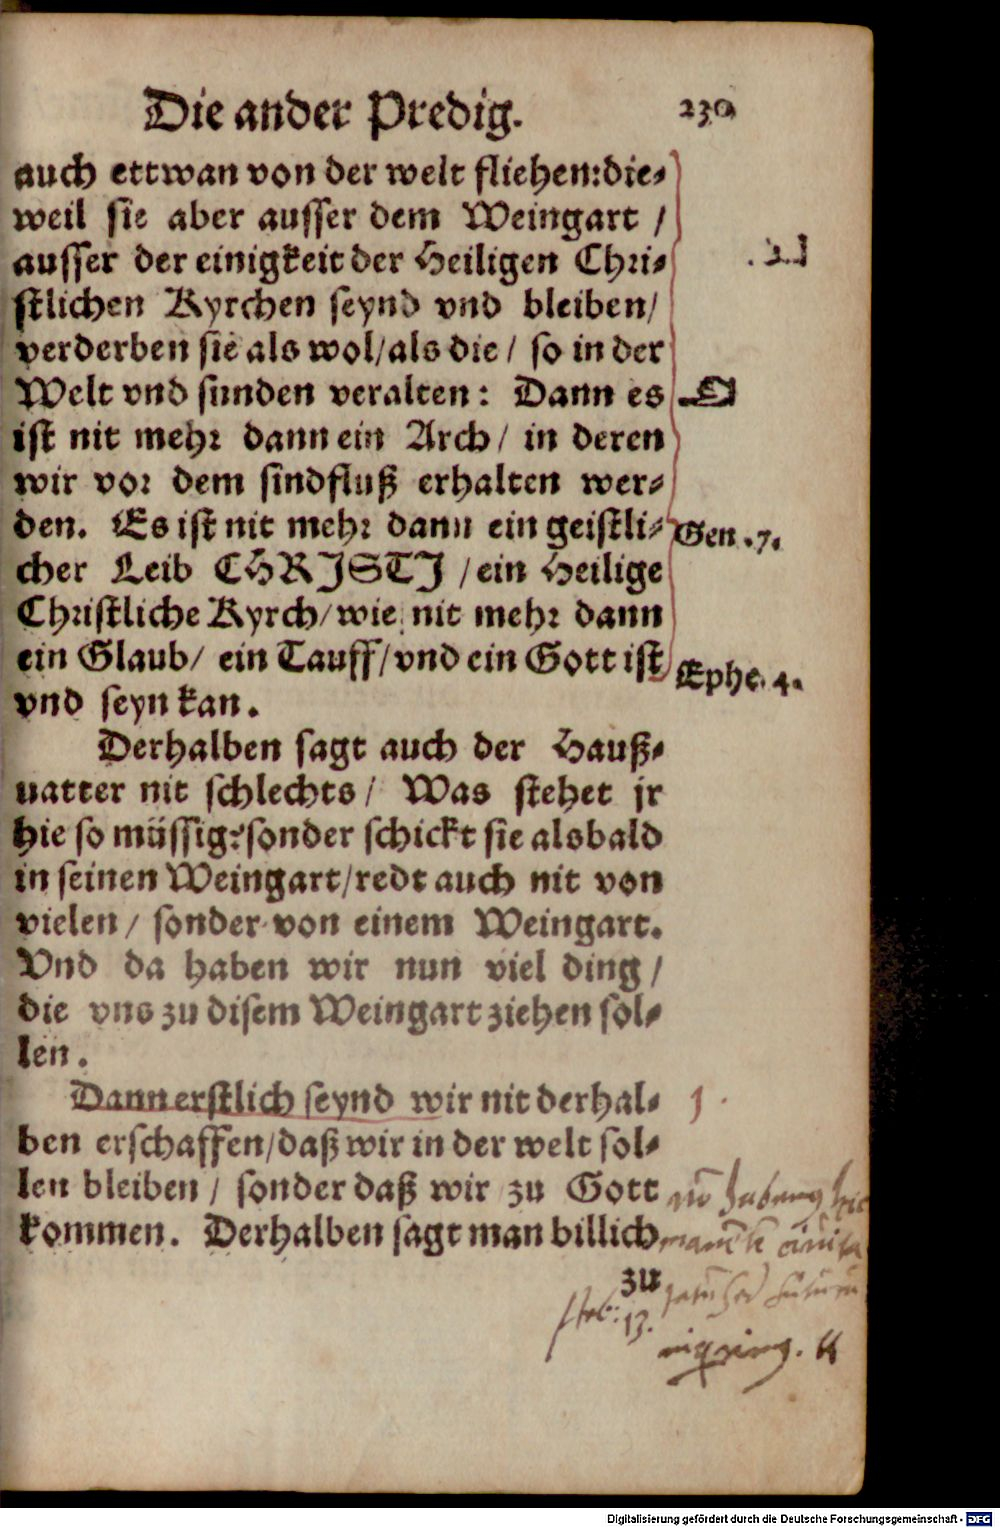 Die ander Predig. 230
auch ettwan von der welt fliehen: die⸗
weil sie aber ausser dem Weingart /
ausser der einigkeit der Heiligen Chri⸗
stlichen Kyrchen seynd vnd bleiben/
verderben sie als wol/als die / so in der
Welt vnd sunden veralten: Dann es
ist nit mehr dann ein Arch / in deren
wir vor dem sindfluß erhalten wer⸗
den. Es ist nit mehr dann ein geistli⸗
Gen .7.
cher Leib CHRISTI / ein Heilige
Christliche Kyrch/wie nit mehr dann
ein Glaub/ ein Tauff/vnd ein Gott ist
Ephe. 4.
vnd seyn kan.
Derhalben sagt auch der Hauß⸗
uatter nit schlechts / Was stehet jr
hie so müssig? sonder schickt sie alsbald
in seinen Weingart/redt auch nit von
vielen / sonder von einem Weingart.
Vnd da haben wir nun viel ding /
die vns zu disem Weingart ziehen sol⸗
len.
Dann erstlich seynd wir nit derhal⸗
1.
ben erschaffen/daß wir in der welt sol⸗
len bleiben / sonder daß wir zu Gott
kommen. Derhalben sagt man billich
zu
nō habemq hic
Heb: 13.